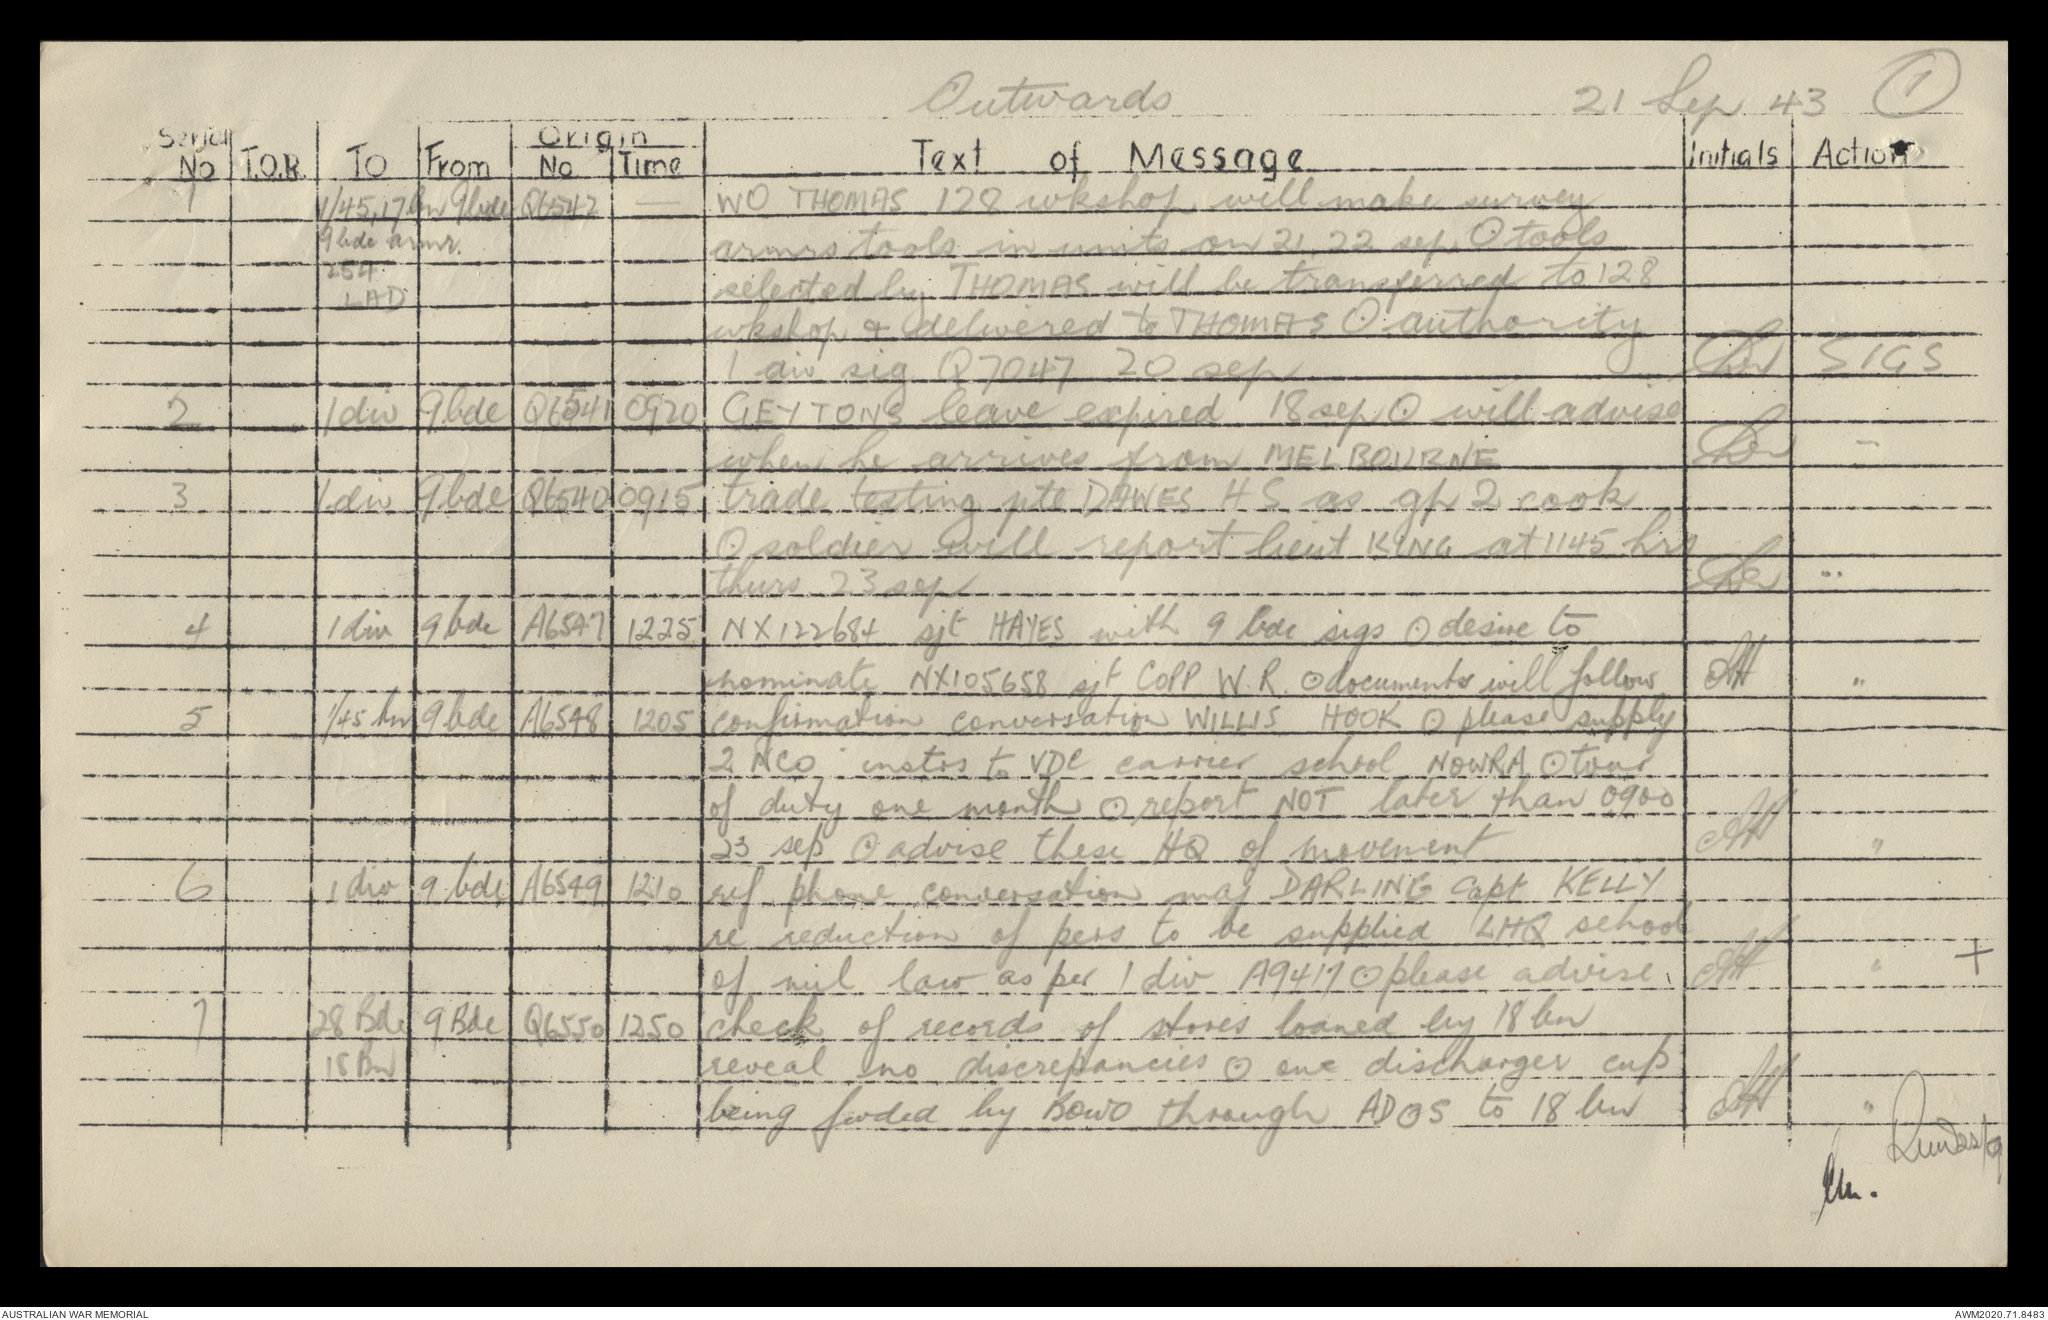 Outwards 21 Sep 43 1
Serial No T.O.R. TO From Origin No Time Text of Message Initials Action
1 1/45,17 bn 9 bde Q6542 — WO THOMAS 128 wkshop will make survey
9 bde armr. armrs tools in units on 21, 22 sep ⊙ tools
254 selected by THOMAS will be transferred to 128
LAD wkshop & delivered to THOMAS ⊙ authority
1 div sig Q7047 20 sep SIGS
2 1 div 9 bde Q6541 0920 GEYTONS leave expired 18 sep ⊙ will advise
when he arrives from MELBOURNE "
3 1 div 9 bde Q6540 0915 trade testing pte DAWES H S as gp 2 cook
⊙ soldier will report lieut KING at 1145 hrs
thurs 23 sep "
4 1 div 9 bde A6547 1225 NX122684 sjt HAYES with 9 bde sigs ⊙ desire to
nominate NX105658 sjt COPP W.R. ⊙ documents will follow "
5 1/45 bn 9 bde A6548 1205 confirmation conversation WILLIS HOOK ⊙ please supply
2 NCO instrs to VDC carrier school NOWRA ⊙ tour
of duty one month ⊙ report NOT later than 0900
23 sep ⊙ advise these HQ of movement "
6 1 div 9 bde A6549 1210 ref phone conversation maj DARLING capt KELLY
re reduction of pers to be supplied LHQ school
of mil law as per 1 div A9417 ⊙ please advise " +
7 28 Bde 9 Bde Q6550 1250 check of records of stores loaned by 18 bn
18 Bn reveal no discrepancies ⊙ one discharger cup
being fwded by BOWO through ADOS to 18 bn "
AUSTRALIAN WAR MEMORIAL AWM2020.71.8483